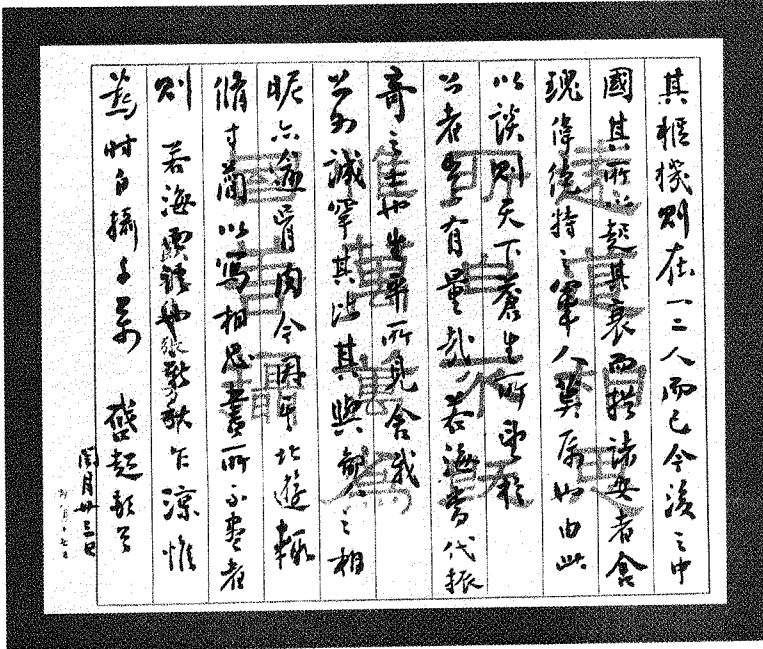 其樞機則在一二人而已今後之中
國其所以起其衰而措諸安者舍
瑰偉絕特之軍人莫屬也由此
以談則天下蒼生所望於
公者寧有量哉若海當代振
奇之士也生平所見舍我
公外誠罕其匹其與鄙人之相
昵亦逾骨肉今因其北遊輒
脩寸簡以寫相思書所不盡者
則 若海 乞諒惟
為時自攝千萬 啟超頓首
閏月廿三日